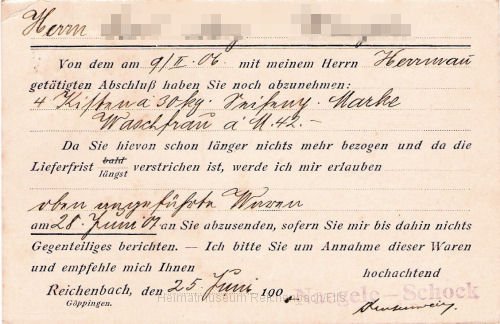 Herrn
Von dem am 9/II. 06. mit meinem Herrn Herrmann
getätigten Abschluß haben Sie noch abzunehmen:
4 Kisten a 30 kg. Seifenp. Marke
Waschfrau á M. 42.–
Da Sie hievon schon länger nichts mehr bezogen und da die
Lieferfrist bald längst verstrichen ist, werde ich mir erlauben
oben angeführte Waren
am 28. Juni 07 an Sie abzusenden, sofern Sie mir bis dahin nichts
Gegenteiliges berichten. — Ich bitte Sie um Annahme dieser Waren
und empfehle mich Ihnen
hochachtend
Reichenbach, den 25 Juni 190 Naegele-Schock
Göppingen.
Heimatmuseum Reichenbach/Fils